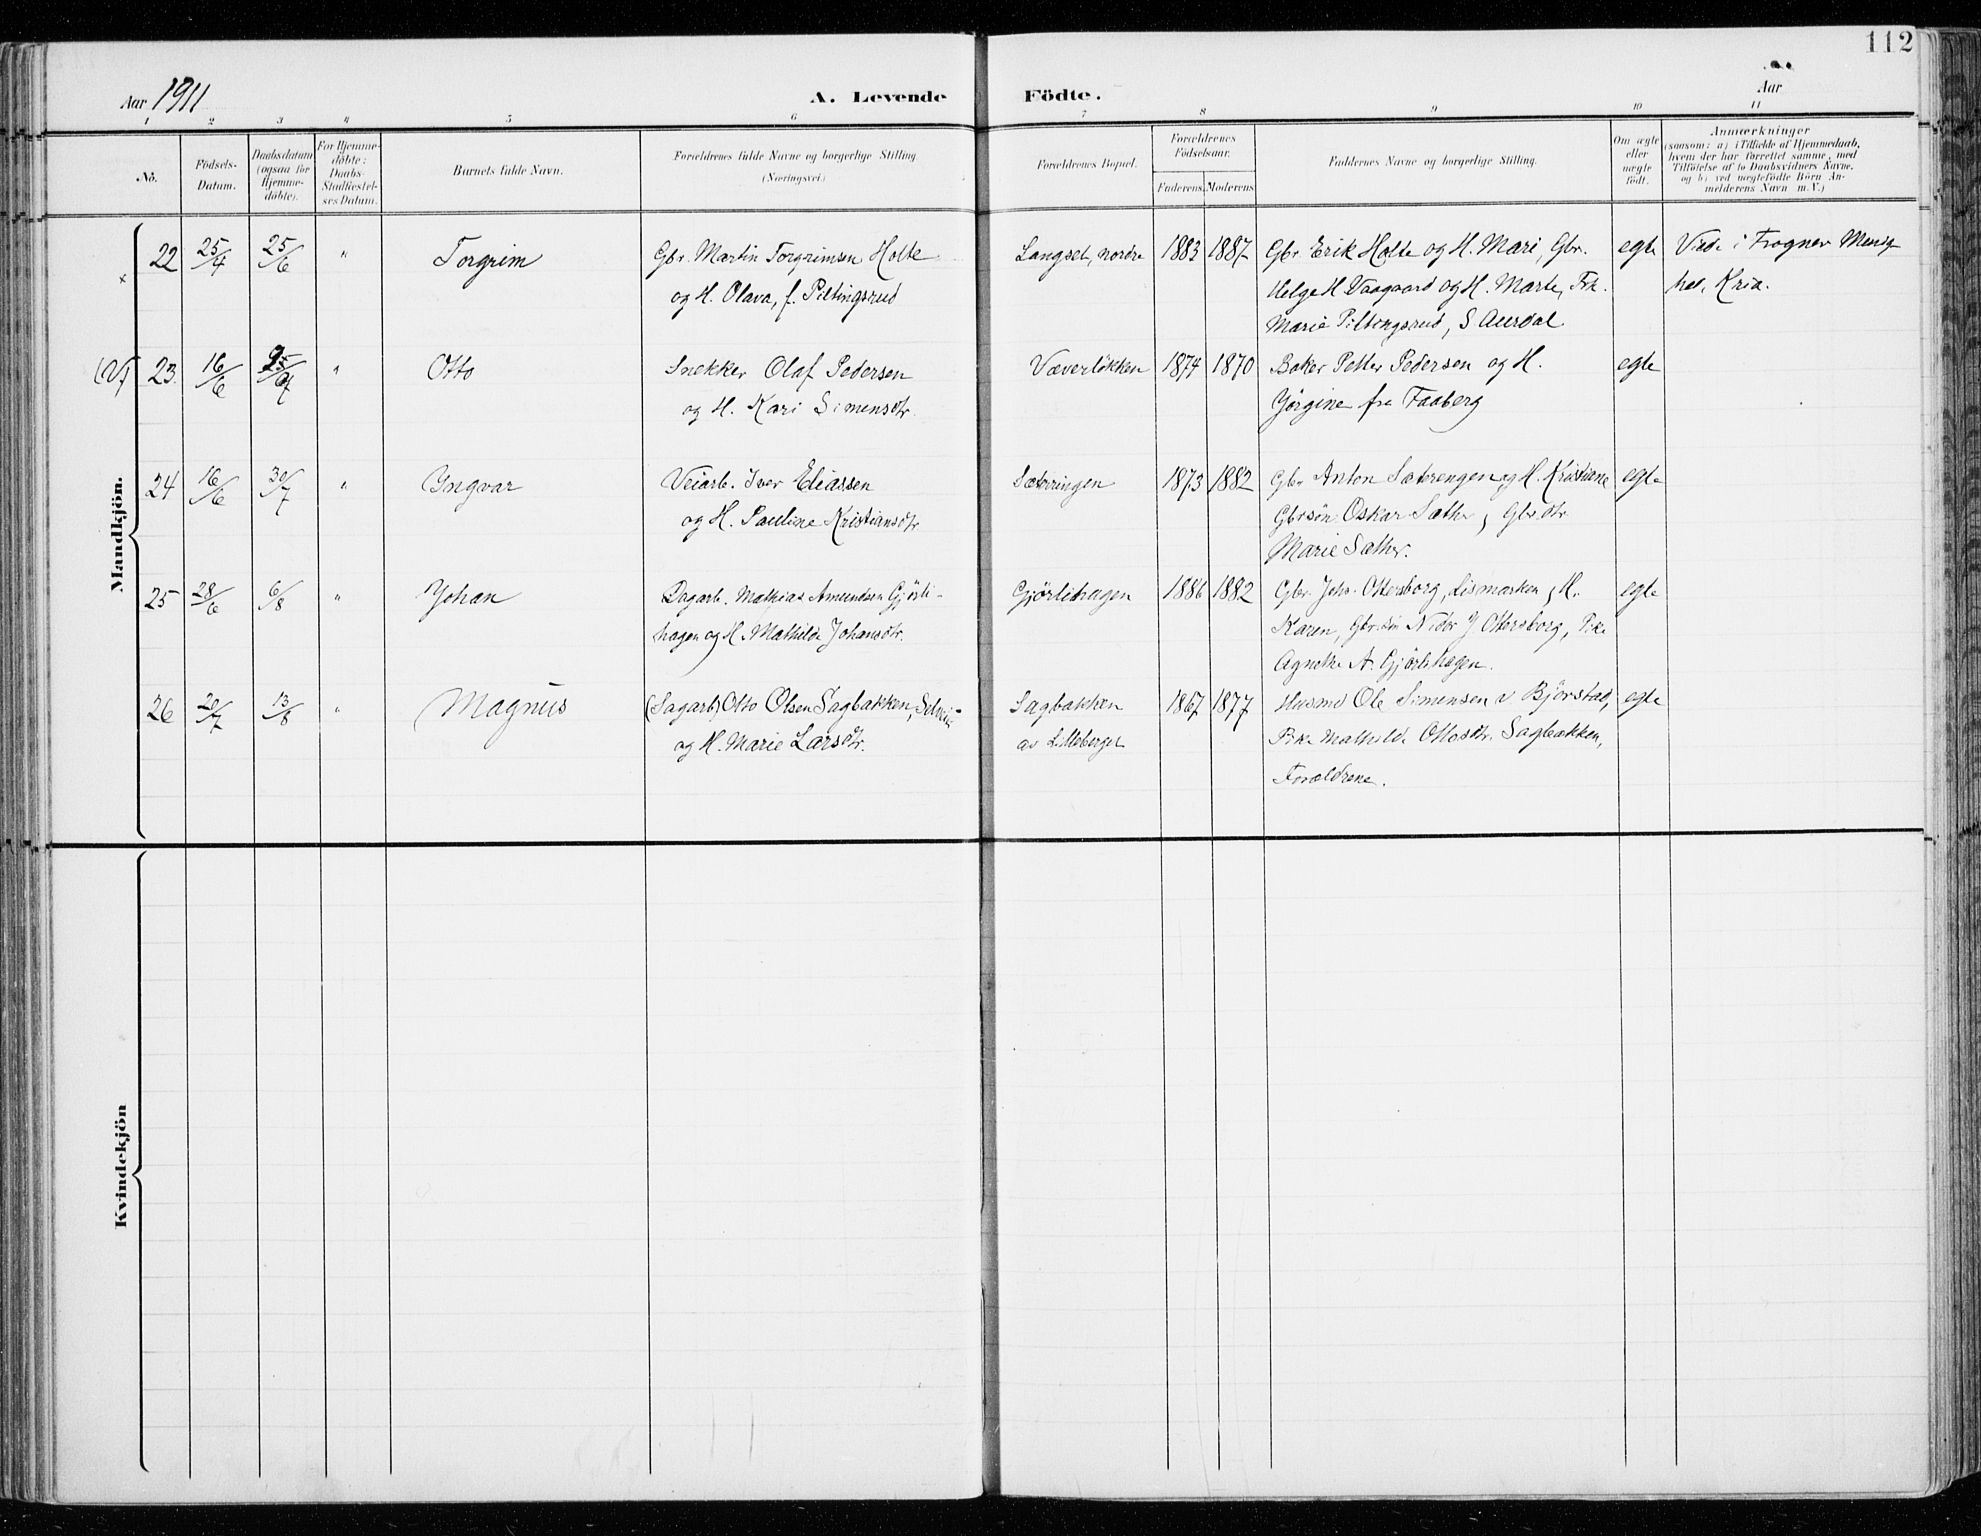 112
Aar 1911
A. Levende Födte.
Aar
1 2 3 4 5 6 7 8 9 10 11
No.
Födsels-Datum.
Daabsdatum (ogsaa for Hjemme-döbte).
For Hjemme-döbte: Daabs-Stadfæstel-ses Datum.
Barnets fulde Navn.
Forældrenes fulde Navne og borgerlige Stilling (Næringsvei.)
Forældrenes Bopæl.
Forældrenes Födselsaar.
Faderens Moderens
Faddernes Navne og borgerlige Stilling.
Om ægte eller uægte födt.
Anmærkninger
(saasom: a) i Tilfælde af Hjemmedaab,
hvem der har forrettet samme, med
Tilföielse af to Daabsvidners Navne,
og b) ved uægtefödte Börn An-
melderens Navn m. V.)
Mandkjön.
22 25/4 25/6 " Torgrim Gbr. Martin Torgrimsen Holte Langset, nordre 1883 1887 Gbr. Erik Holte og H. Mari, Gbr. egte i Frogner Menig
og H. Olava, f. Piltingsrud Helge H Vaagaard og H. Marte, Pk. het, Kria.
Marie Piltingsrud, S Aurdal
(V) 23 16/6 " Otto Snekker Olaf Pedersen Væverlökken 1874 1870 Baker Petter Pedersen og H. egte
og H. Kari Simensdtr. Jörgine fra Faaberg
24 16/6 30/7 " Yngvar Veiarb. Iver Eliassen Sæterringen 1873 1882 Gbr Anton Sæterengen og H. Kristiane egte
og H. Pauline Kristiansdtr. Gbrsön Oskar Sæther, Gbrdtr
Marie Sæther.
25 28/6 6/8 " Johan Dagarb. Mathias Amundsen Gjörli- Gjörlihagen 1886 1882 Gbr. Johs. Ottersborg, Lismarken, H. egte
hagen og H. Mathilde Johansdtr. Karen, Gbr.sön J Ottersborg, Pike
Agnethe A. Gjörlihagen.
26 20/7 13/8 " Magnus (Sagarb) Otto Olsen Sagbakken, Sagbakken 1867 1877 Husmd Ole Simensen v Björstad, egte
og H. Marie Larsdtr. av Lilleberget Pike Mathilde Ottosdtr. Sagbakken,
Forældrene.
Kvindekjön